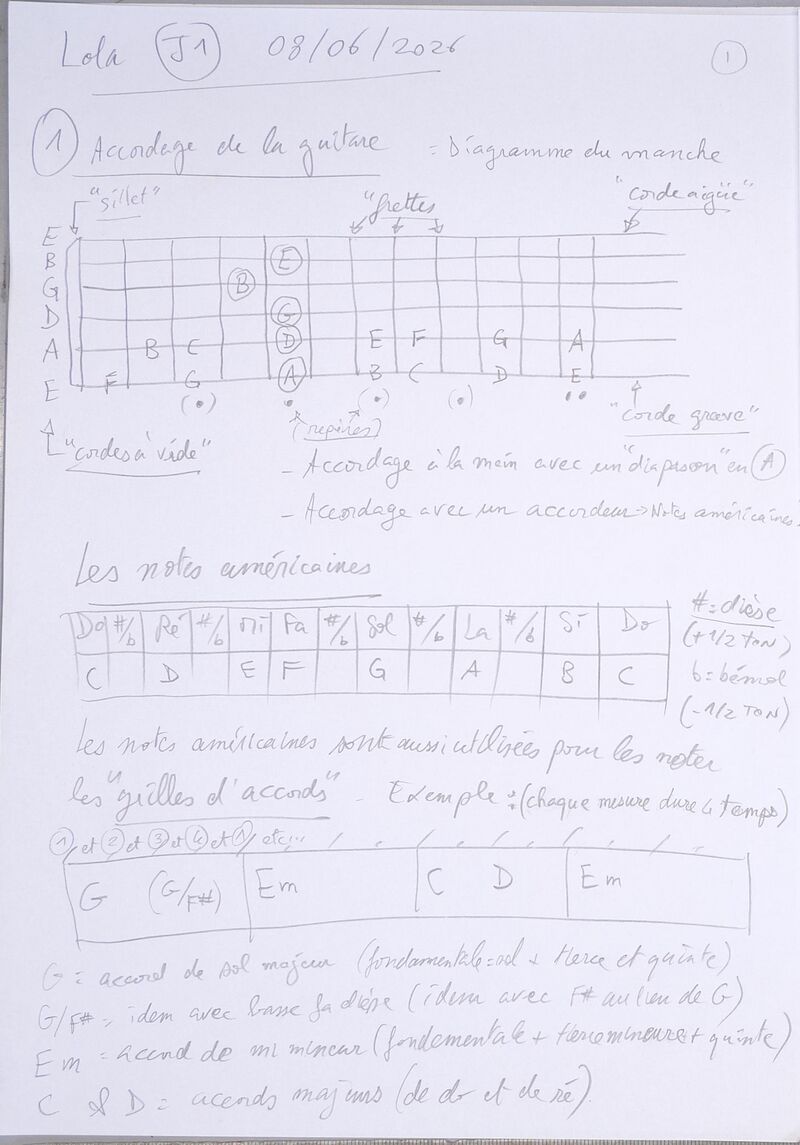 Lola J1 08/06/2026 1
1 Accordage de la guitare = Diagramme du manche
"sillet" "frettes" "corde aigüe"
E
B E
G B
D G
A B C D E F G A
E F G A B C D E
(•) • (•) (•) ••
"cordes à vide" (repères) "corde grave"
- Accordage à la main avec un "diapason" en A
- Accordage avec un accordeur → Notes américaines
Les notes américaines
Do #/b Ré #/b Mi Fa #/b Sol #/b La #/b Si Do
C D E F G A B C
# = dièse
(+1/2 TON)
b = bémol
(-1/2 TON)
Les notes américaines sont aussi utilisées pour les noter
les "grilles d'accords" - Exemple : (chaque mesure dure 4 temps)
1 / et 2 et 3 et 4 et 1 / etc...
G (G/F#) Em C D Em
G = accord de sol majeur (fondamentale = sol + tierce et quinte)
G/F# = idem avec basse fa dièse (idem avec F# au lieu de G)
Em = accord de mi mineur (fondementale + tierce mineure + quinte)
C & D = accords majeurs (de do et de ré).